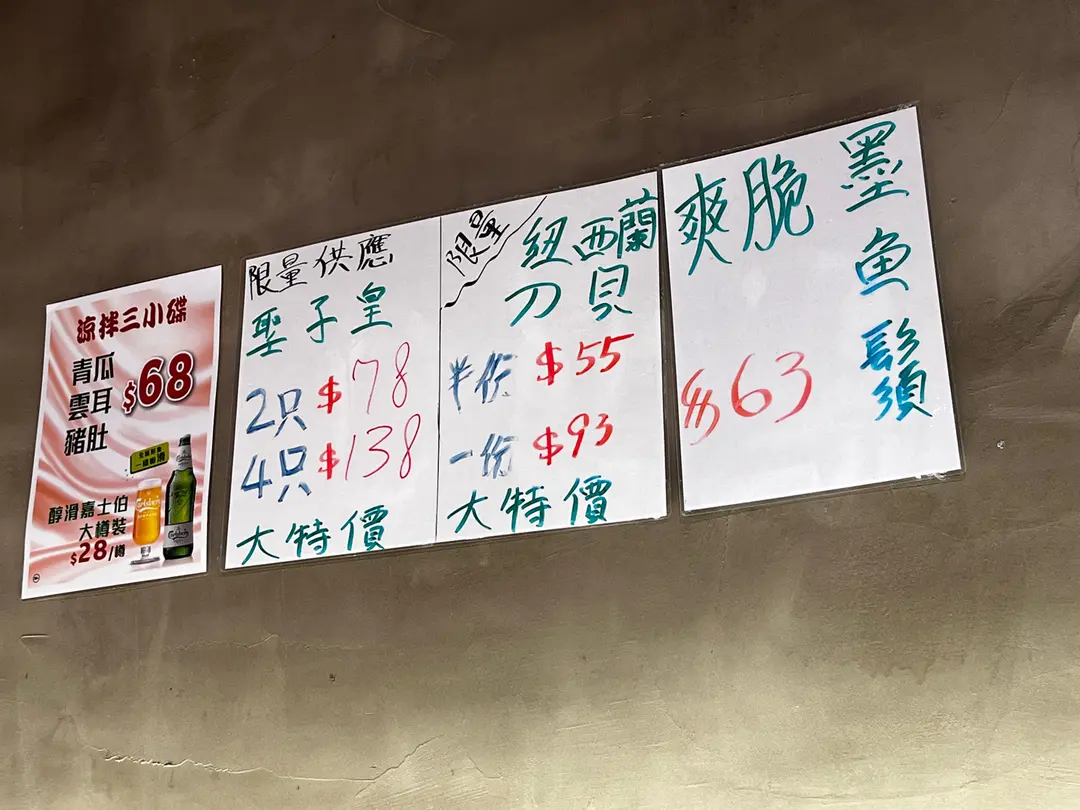 涼拌三小碟
青瓜
雲耳
豬肚
$68
醇滑嘉士伯
大樽裝
$28/樽
Carlsberg
限量供應
聖子皇
2只 $78
4只 $138
大特價
限量
紐西蘭
刀貝
半份 $55
一份 $93
大特價
墨魚鬚
爽脆
$63